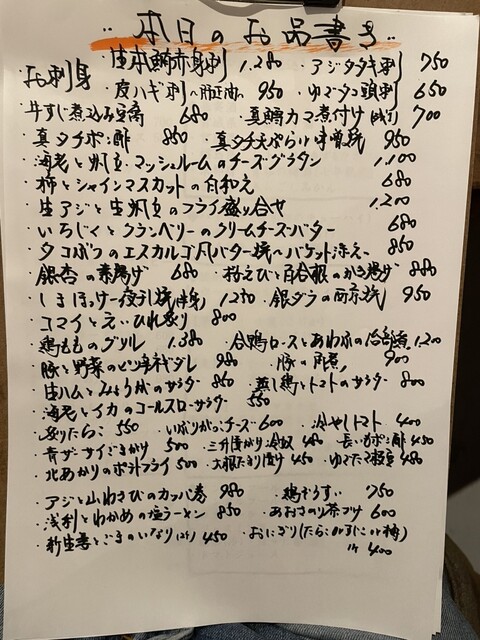 本日のお品書き
お刺身 ・生本鮪赤身刺 1,280 ・アジタタキ刺 750
・皮ハギ刺 950 ・ゆでタコ頭刺 650
・牛すじ煮込み豆腐 680 ・真鯛カマ煮付け 700
・真タチポン酢 850 ・真タチ天ぷら 950
・海老と帆立、マッシュルームのチーズグラタン 1,100
・柿とシャインマスカットの白和え 680
・生アジと生帆立のフライ盛り合せ 1,200
・いちじくとクランベリーのクリームチーズバター 680
・タコぶつのエスカルゴ風バター焼〜バゲット添え〜 850
・銀杏の素揚げ 680 ・桜えびと百合根のかき揚げ 880
・しまほっけ一夜干し焼(半身) 1,250 ・銀ダラの西京焼 950
・コマイとえいひれ炙り 800
・鶏もものグリル 1,380 ・合鴨ロースとあわふの治部煮 1,200
・豚と野菜のピリ辛ネギダレ 980 ・豚の角煮 900
・生ハムとみょうがのサラダ 850 ・蒸し鶏とトマトのサラダ 800
・海老とイカのコールスローサラダ 550
・炙りたらこ 550 ・いぶりがっこチーズ 600 ・冷やしトマト 400
・500 ・三升漬かり冷奴 480 ・長いもポン酢 450
・北あかりのポテトフライ 500 ・大根たまり漬け 450 ・ゆでたて枝豆 480
・アジと山わさびのカッパ巻 980 ・鶏ぞうすい 750
・浅利とわかめの塩ラーメン 850 ・あおさのり茶づけ 600
・新生姜とごまのいなり 450 ・おにぎり(たらこorすじこor梅)
1ケ 400